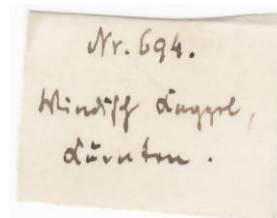 Nr. 694.
Windisch Kappel,
Kärnten.